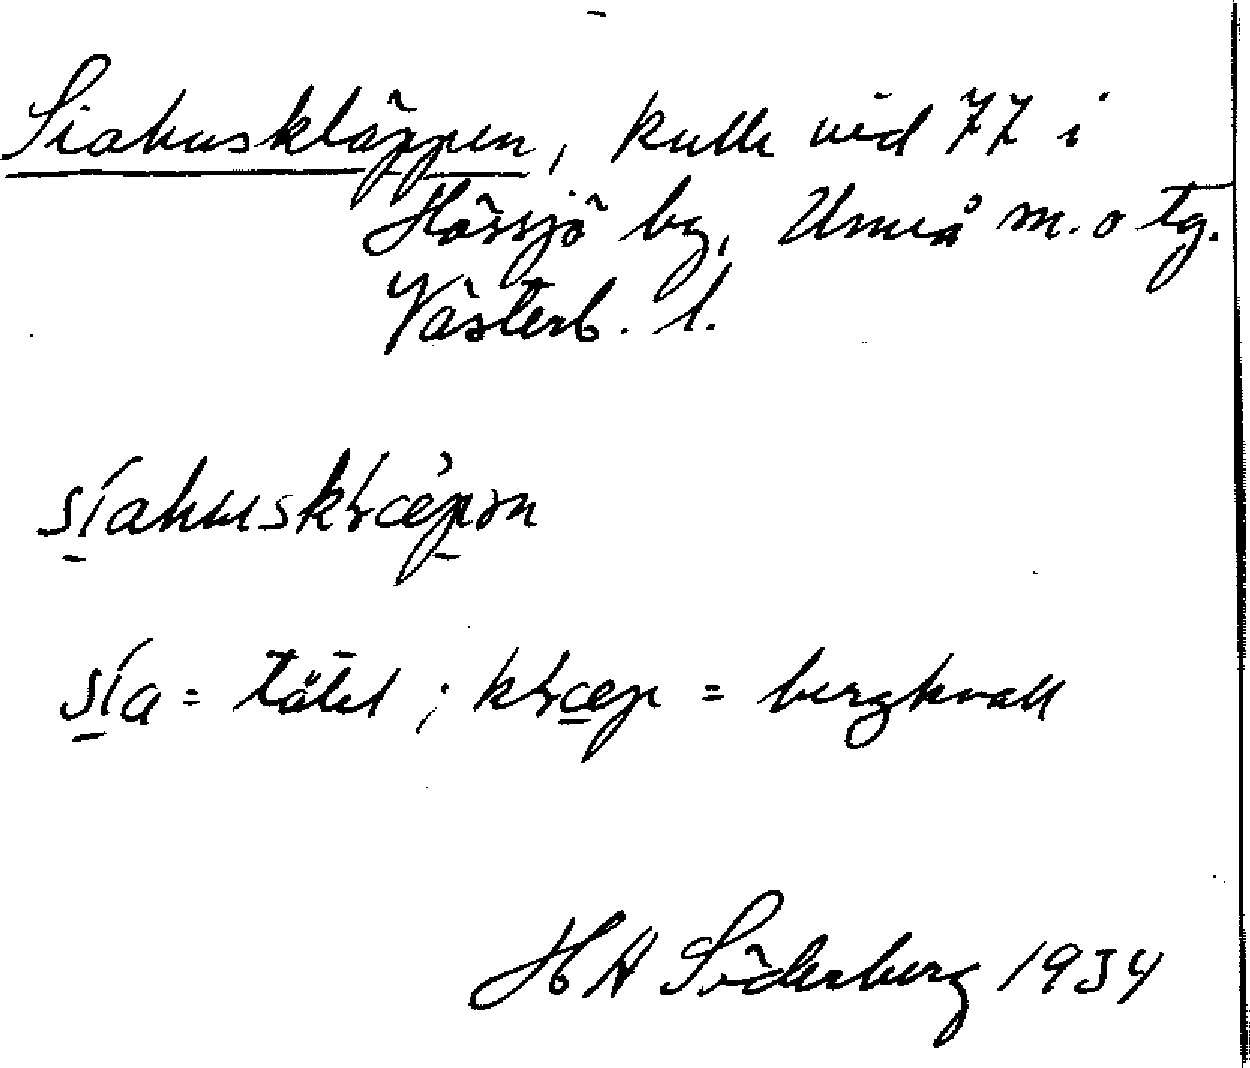 Siahuskläppen, kulle vid 77 i
Hössjö by, Umeå m. o tg.
Västerb. l.
síahuskɽæ̀pən
sía = tätel ; kɽæp = bergknall
H A Söderberg 1934